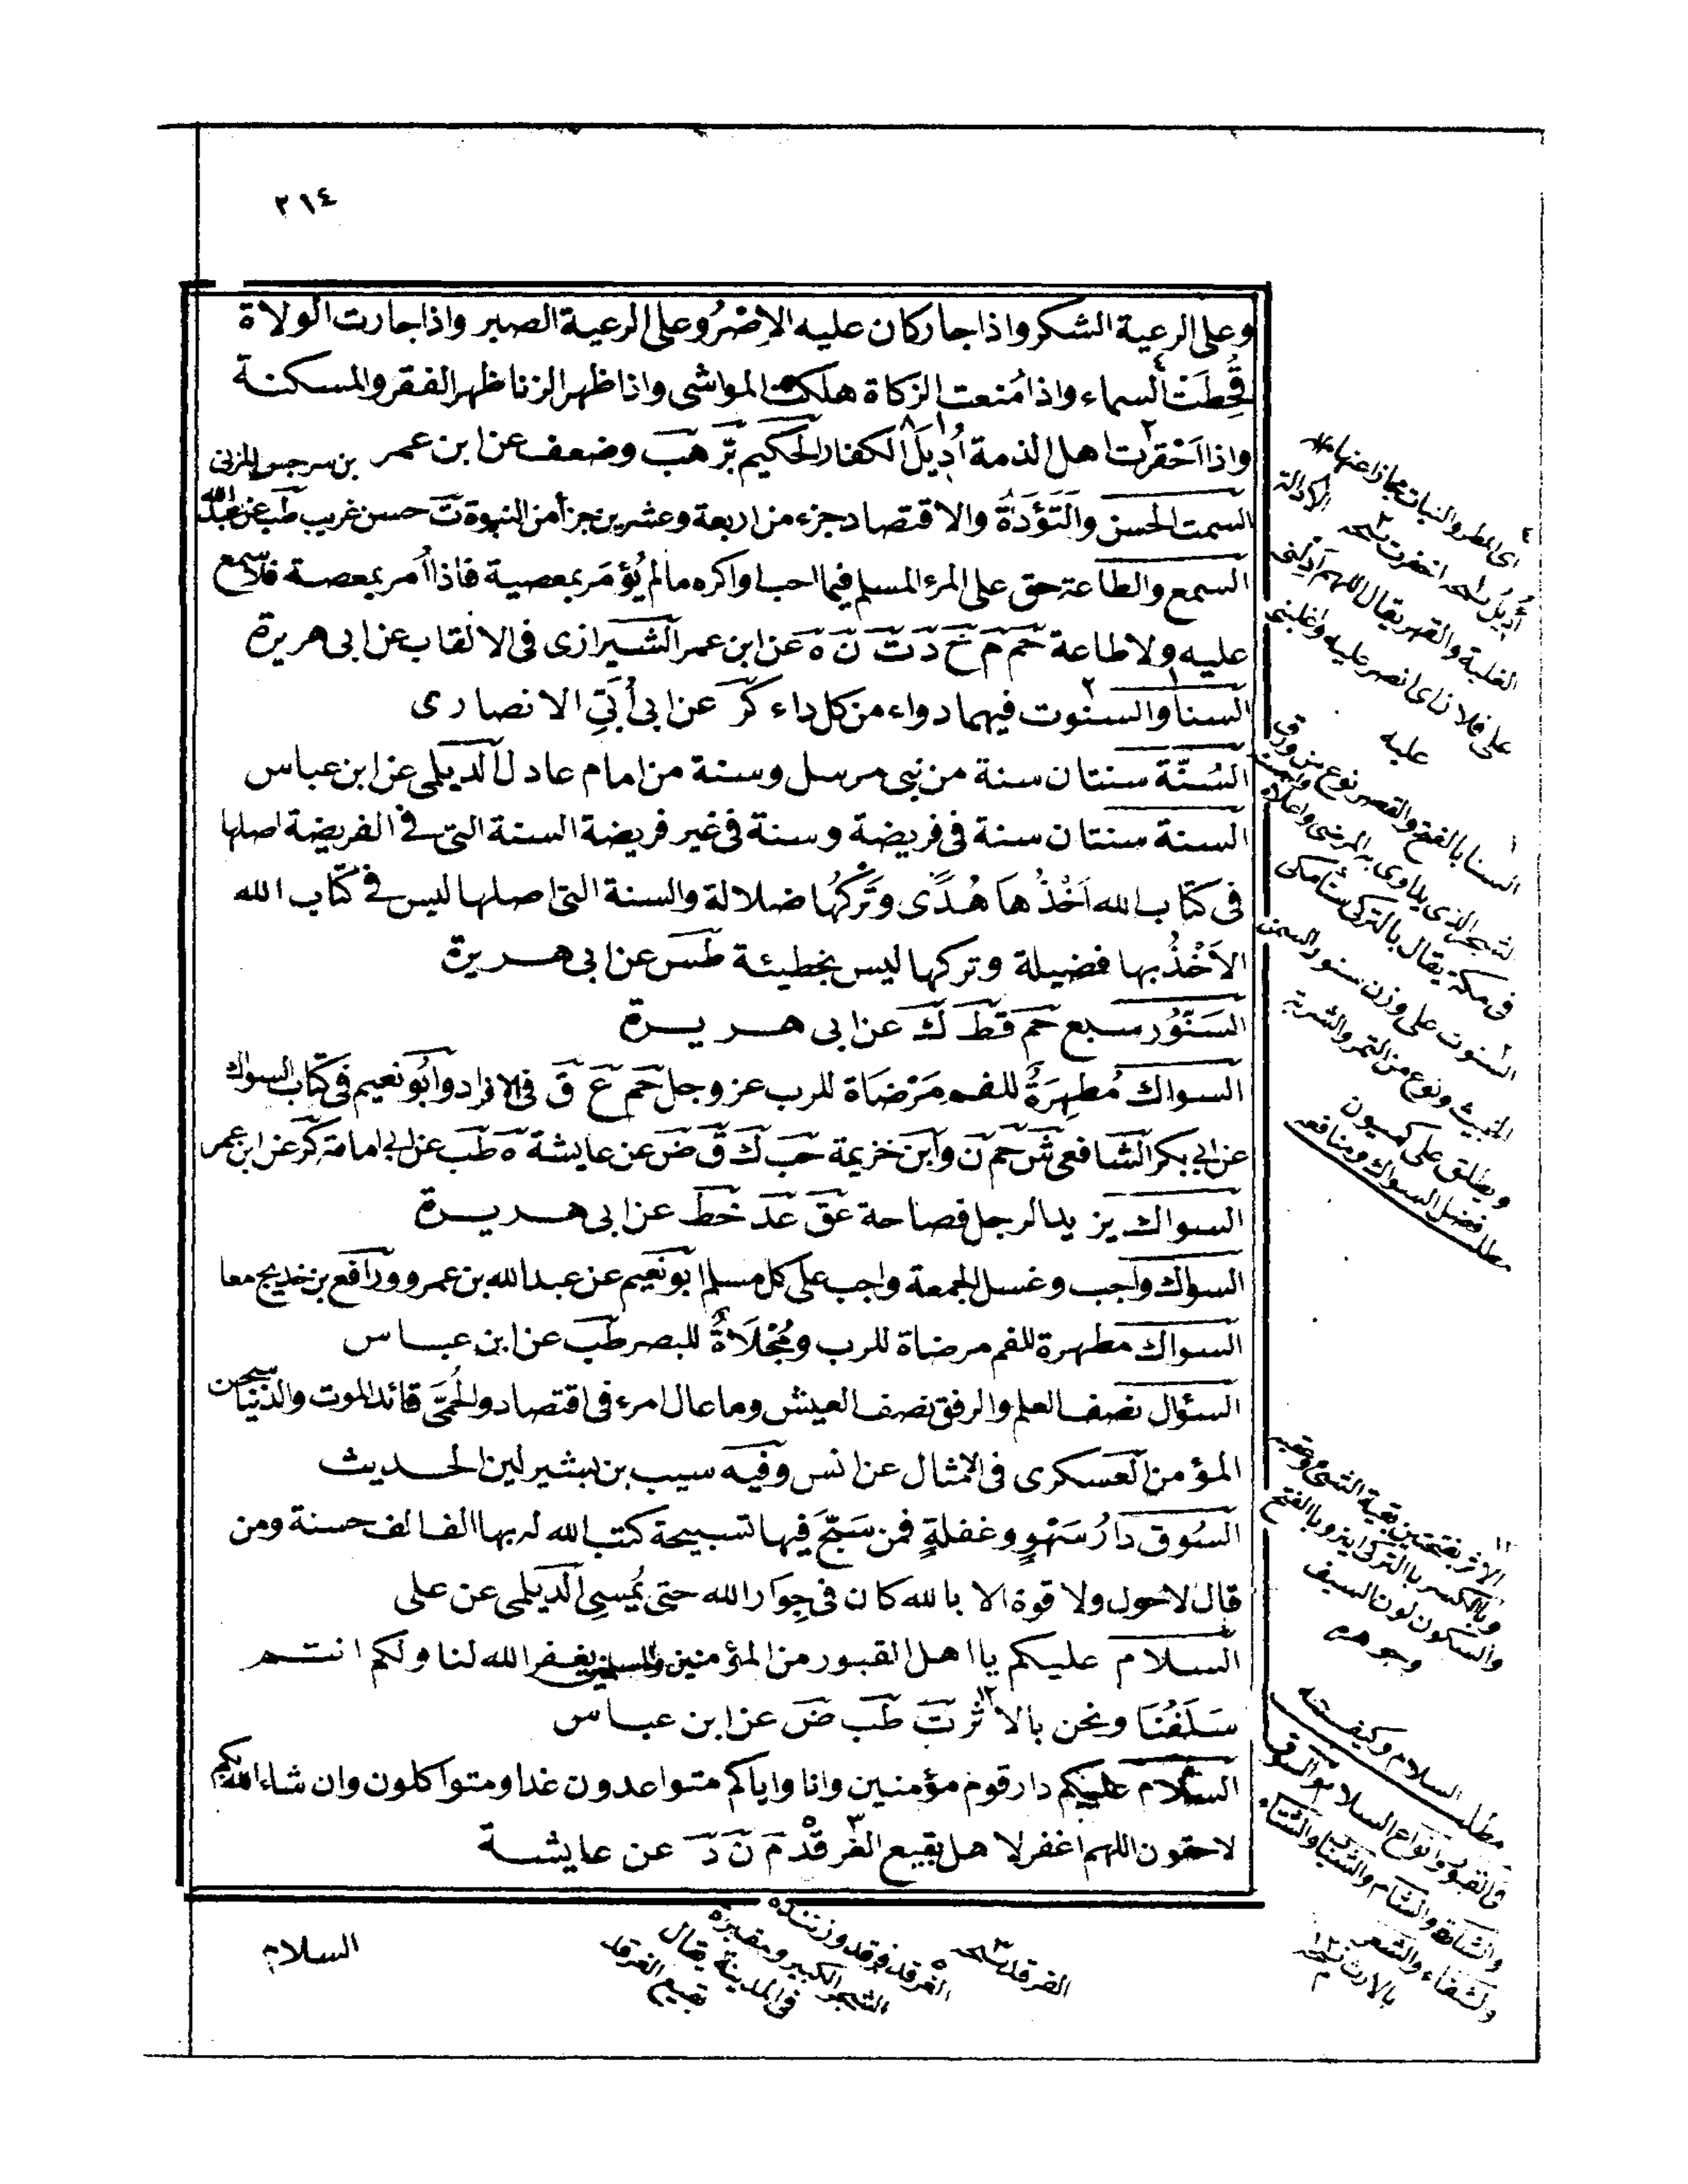 ٢١٤
وعلى الرعية الشكر واذا جار كان عليه الاِصْرُ وعلى الرعية الصبر واذا جارت الولاة
قُحِطَتْ السماء واذا مُنعت الزكاة هلكت المواشى واذا ظهر الزنا ظهر الفقر والمسكنة
واذا اَخْفرت اهل الذمة اُدِيلَ الكفار الحكيم بَّر هب وضعف عن ابن عمر
السمت الحسن والتَؤَدَةُ والاقتصاد جزء من اربعة وعشرين جزأ من النبوة ت حسن غريب طب عن عبد الله بن سرجس المزنى
السمع والطاعة حق على المرء المسلم فيما احب او اكره مالم يُؤمَر بمعصية فاذا اُمر بمعصة فلا سمع
عليه ولا طاعة حم م خ د ت ن ه عن ابن عمر الشيرازى فى الالقاب عن ابى هريرة
السنا والسنوت فيهما دواء من كل داء كر عن ابى اُبَىّ الانصارى
السُنّة سنتان سنة من نبى مرسل وسنة من امام عادل الديلمى عن ابن عباس
السنة سنتان سنة فى فريضة وسنة فى غير فريضة السنة التى فى الفريضة اصلها
فى كتاب الله اَخْذُها هُدًى وتَرْكُها ضلالة والسنة التى اصلها ليس فى كتاب الله
الاَخْذُ بها فضيلة وتركها ليس بخطيئة طس عن ابى هريرة
السَنّوْر سبع حم قط ك عن ابى هريرة
السواك مُطهِرَةٌ للفم مَرْضَاة للرب عز وجل حم ع ق فى الافراد وابو نعيم فى كتاب السواك
عن ابى بكر الشافعى ش حم ن وابن خزيمة حب ك ق ض عن عايشة ه طب عن ابى امامة كر عن ابن عمر
السواك يزيد الرجل فصاحة عق عد خط عن ابى هريرة
السواك واجب وغسل الجمعة واجب على كل مسلم ابو نعيم عن عبد الله بن عمرو ورافع بن خديج معا
السواك مطهرة للفم مرضاة للرب ومُجْلَاةٌ للبصر طب عن ابن عباس
السؤال نصف العلم والرفق نصف العيش وما عال امرء فى اقتصاد والحُمَّى قائد الموت والدنيا سجن
المؤمن العسكرى فى الامثال عن انس وفيه سيب بن بشير لين الحديث
السُوق دارُ سَهْوٍ وغفلةٍ فمن سَبَّحَ فيها تسبيحة كتب الله له بها الف الف حسنة ومن
قال لا حول ولا قوة الا بالله كان فى جِوَار الله حتى يُمسِى الديلمى عن على
السلام عليكم يا اهل القبور من المؤمنين والمسلمين يغفر الله لنا ولكم انتم
سَلَفُنَا ونحن بالاثر ت طب ض عن ابن عباس
السلام عليكم دار قوم مؤمنين وانا واياكم متواعدون غدا ومتواكلون وان شاء الله بكم
لاحقون اللهم اغفر لاهل بقيع الغرقد م ن د عن عايشة
اى المطر والنبات مجازا عنها
اُدِيلُ نسخه اخفرت نسخه الادالة
الغلبة والقهر يقال اللهم اَدِلْنى
على فلان اى انصر عليه واغلبنى
عليه
السنا بالفتح والقصر نوع من ورق
شجر الذى يداوى به المرضى
فى مكة يقال بالتركى سنامكى
السنوت على وزن سنور السمن
الخبيث ونوع من التمر والشربة
ويطلق على كميون
مطلب فضل السواك ومنافعه
الاثر بفتحتين بقية الشئ وعقبه
وبالكسر بالتركى ايز وبالفتح
والسكون لون السيف
وجوهره
مطلب السلام وكيفيته
فى القبور وانواع السلام
بالاثر نسخه
الغرقد نسخه
الغرقد فرقد وزننده
الشجر الكبير ومقبره
فى المدينة يقال
بقيع الغرقد
السلام